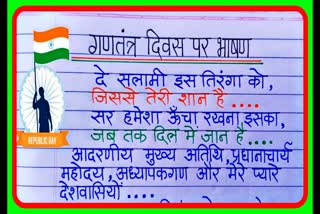 गणतंत्र दिवस पर भाषण
दे सलामी इस तिरंगा को,
जिससे तेरी शान है....
सर हमेशा ऊँचा रखना इसका,
जब तक दिल में जान है....
REPUBLIC DAY
आदरणीय मुख्य अतिथि, प्रधानाचार्य
महोदय, अध्यापकगण और मेरे प्यारे
देशवासियों ....